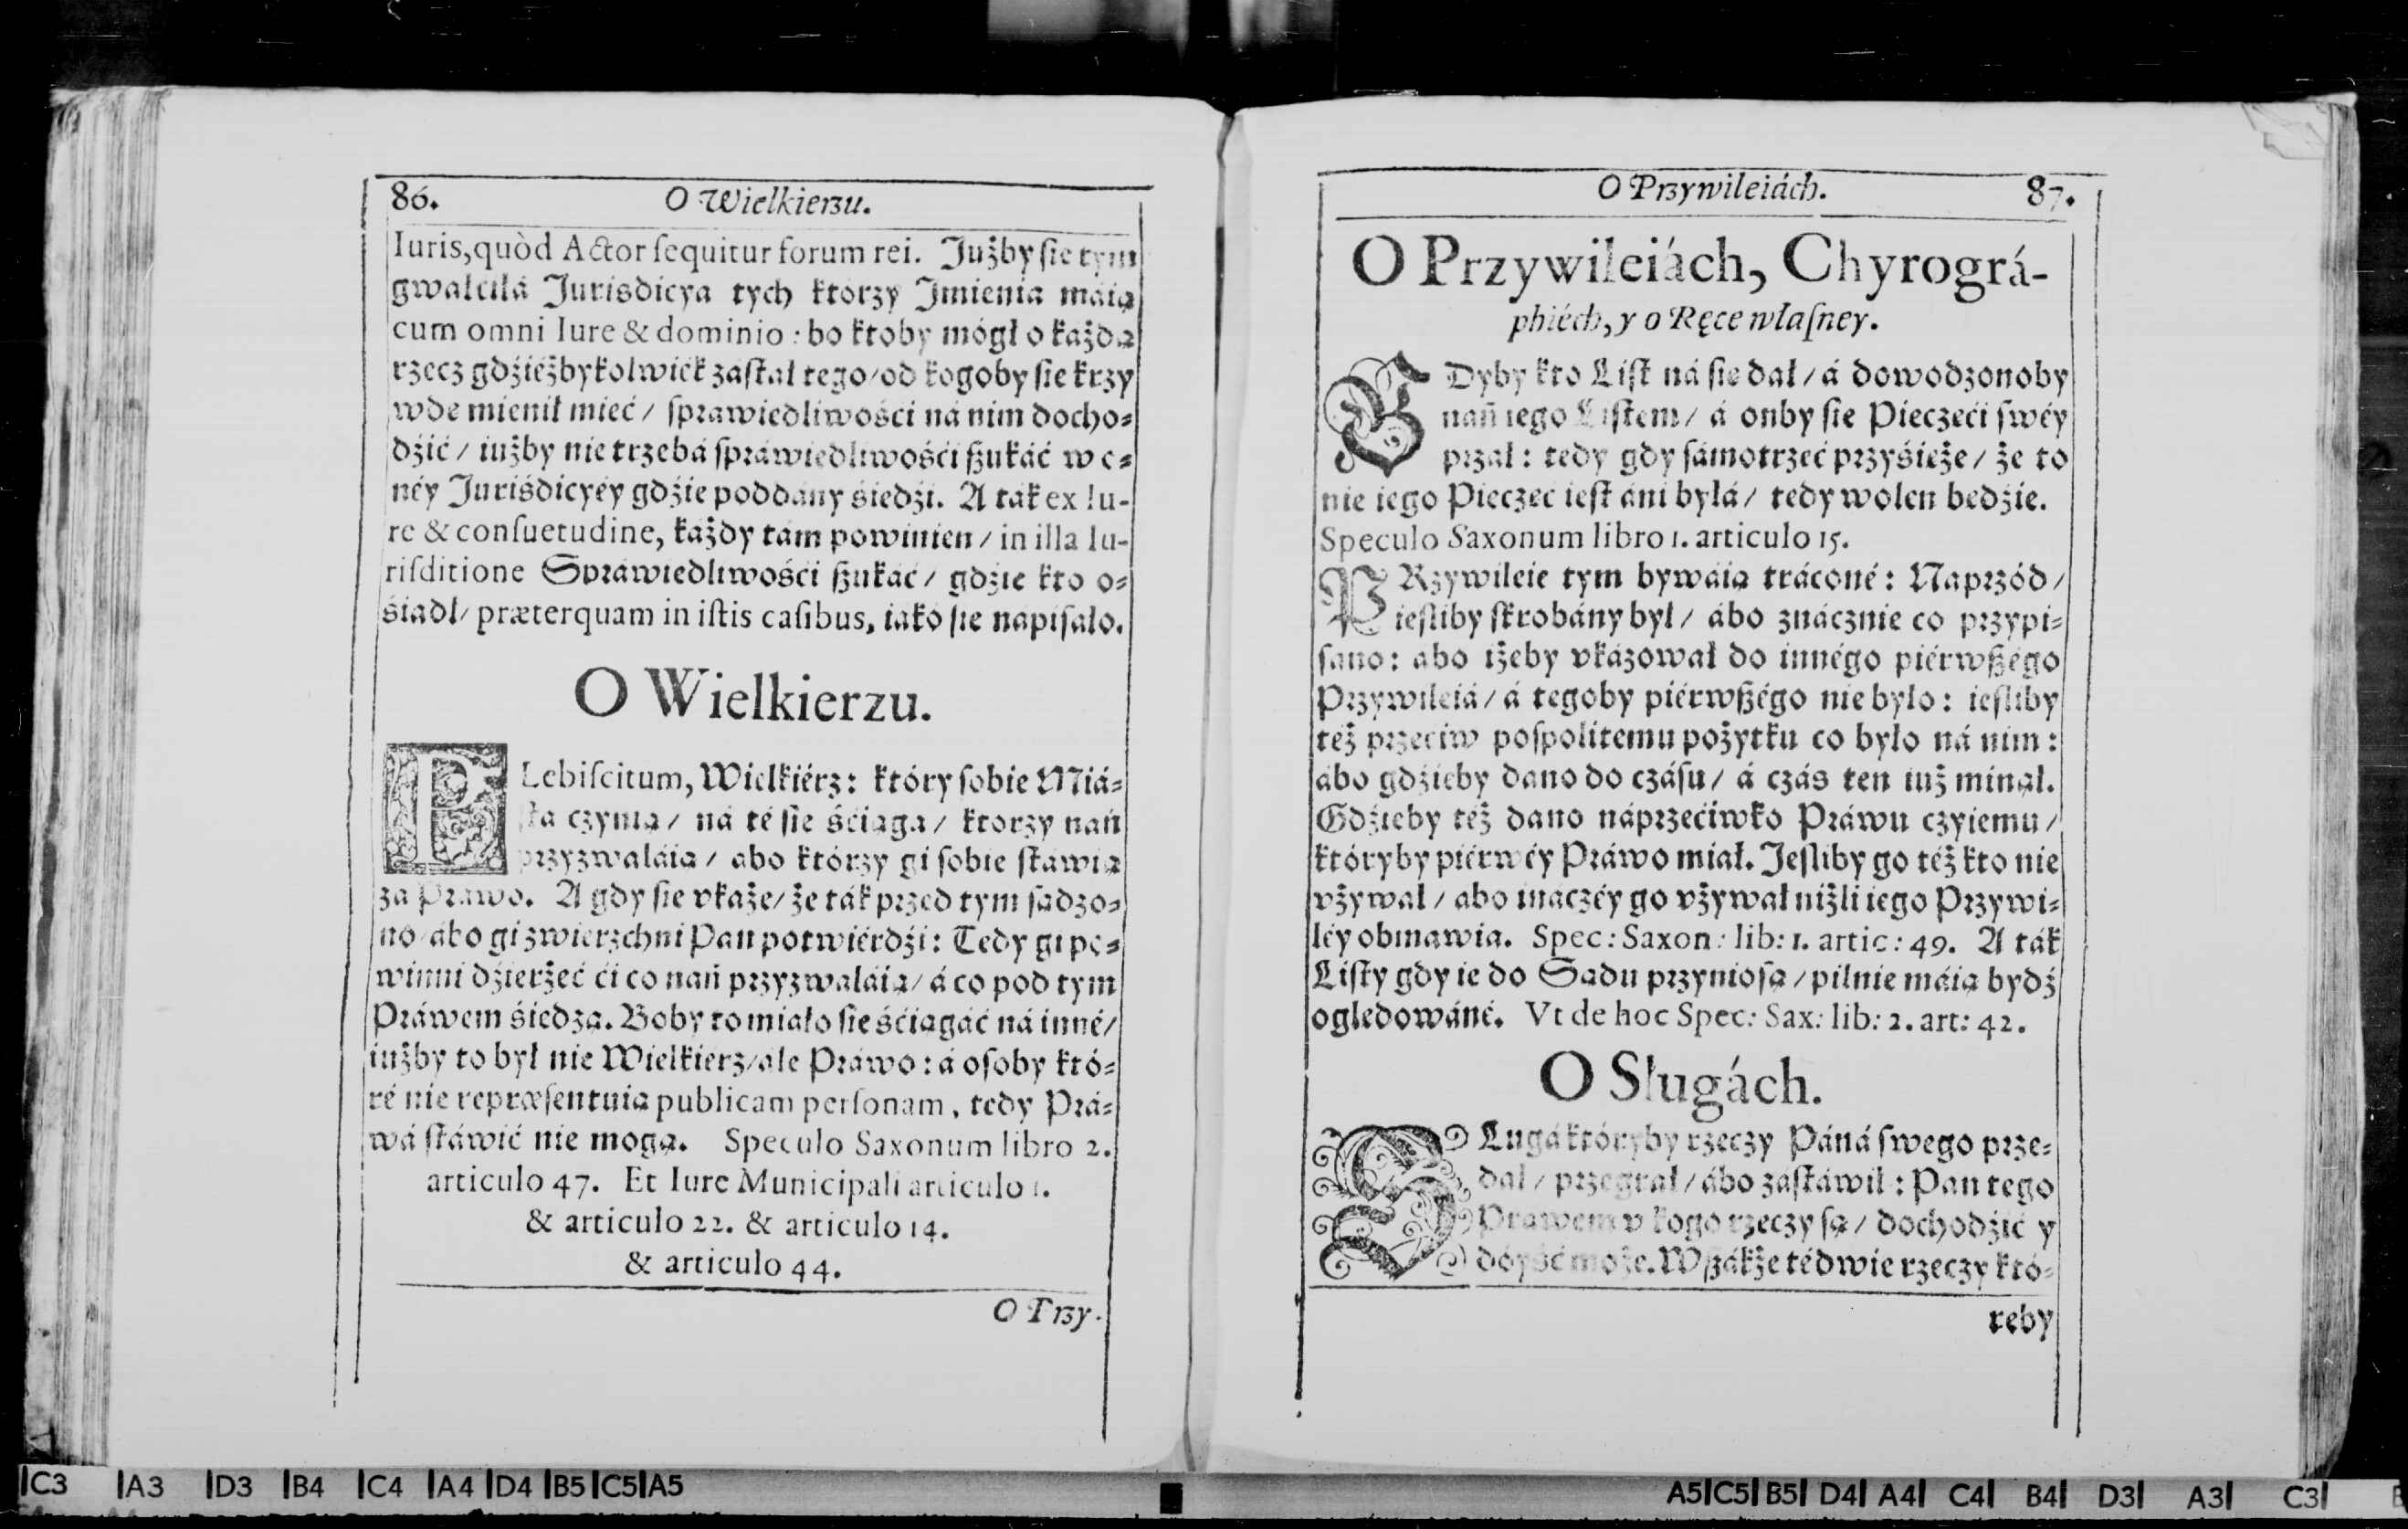 86. O Wielkierzu.
Iuris, quòd Actor ſequitur forum rei. Jużby ſie tym
gwałciłá Jurisdicya tych którzy Jmienia máią
cum omni Iure & dominio : bo ktoby mógł o każdą
rzecz gdźiéżbykolwiék zaſtał tego / od kogoby ſie krzy
wde mienił mieć / ſprawiedliwośći ná nim docho⸗
dźić / iużby nie trzebá ſpráwiedliwośći ßukáć w o⸗
néy Juriśdicyéy gdźie poddány śiedźi. A ták ex Iu-
re & conſuetudine, káżdy tám powinien / in illa Iu-
riſditione Spráwiedliwośći ßukáć / gdźie kto o⸗
śiadł / præterquam in iſtis caſibus, iáko ſie nápiſáło.
O Wielkierzu.
PLebiſcitum, Wielkiérz: który ſobie Miá⸗
ſta czynią / ná té ſie śćiąga / ktorzy nań
przyzwaláią / abo którzy gi ſobie ſtáwią
zá Práwo. A gdy ſie vkaże / że ták przed tym ſądzo⸗
no / ábo gi zwierzchni Pan potwiérdźi: Tedy gi po⸗
winni dźierżeć ći co nań przyzwaláią / á co pod tym
Práwem śiedzą. Boby to miáło ſie śćiągáć ná inné /
iużby to był nie Wielkierz / ále Práwo : á oſoby któ⸗
ré nie repræſentuią publicam perſonam, tedy Prá⸗
wá ſtáwić nie mogą. Speculo Saxonum libro 2.
articulo 47. Et Iure Municipali articulo 1.
& articulo 22. & articulo 14.
& articulo 44.
O Przy-
O Przywileiách. 87.
O Przywileiách, Chyrográ-
phiéch, y o Ręce własſney.
GDyby kto Liſt ná ſie dał / á dowodzonoby
nań iego Liſtem / á onby ſie Pieczeći ſwéy
przał : tedy gdy ſámotrzeć przyśięże / że to
nie iego Pieczeć ieſt áni byłá / tedy wolen bedźie.
Speculo Saxonum libro 1. articulo 15.
PRzywileie tym bywáią tráconé : Naprzód /
ieſliby ſkrobány był / ábo znácznie co przypi⸗
ſano : abo iżeby vkázował do innégo piérwßégo
Przywileiá / á tegoby piérwßégo nie było : ieſliby
też przećiw poſpolitemu pożytku co było ná nim :
ábo gdźieby dano do czáſu / á czás ten iuż minął.
Gdźieby téż dano náprzećiwko Práwu czyiemu /
któryby piérwéy Práwo miał. Jeſliby go téż kto nie
vżywał / abo ináczéy go vżywał niżli iego Przywi⸗
léy obmawia. Spec: Saxon: lib: 1. artic: 49. A ták
Liſty gdy ie do Sądu przynioſą / pilnie máią bydź
oględowáné. Vt de hoc Spec: Sax: lib: 2. art: 42.
O Sługách.
SŁugá któryby rzeczy Páná ſwego prze⸗
dał / przegrał / ábo záſtáwił : Pan tego
Práwem v kogo rzeczy ſą / dochodźić y
dóyść może. Wßákże té dwie rzeczy któ⸗
reby
C3 A3 D3 B4 C4 A4 D4 B5 C5 A5
A5 C5 B5 D4 A4 C4 B4 D3 A3 C3